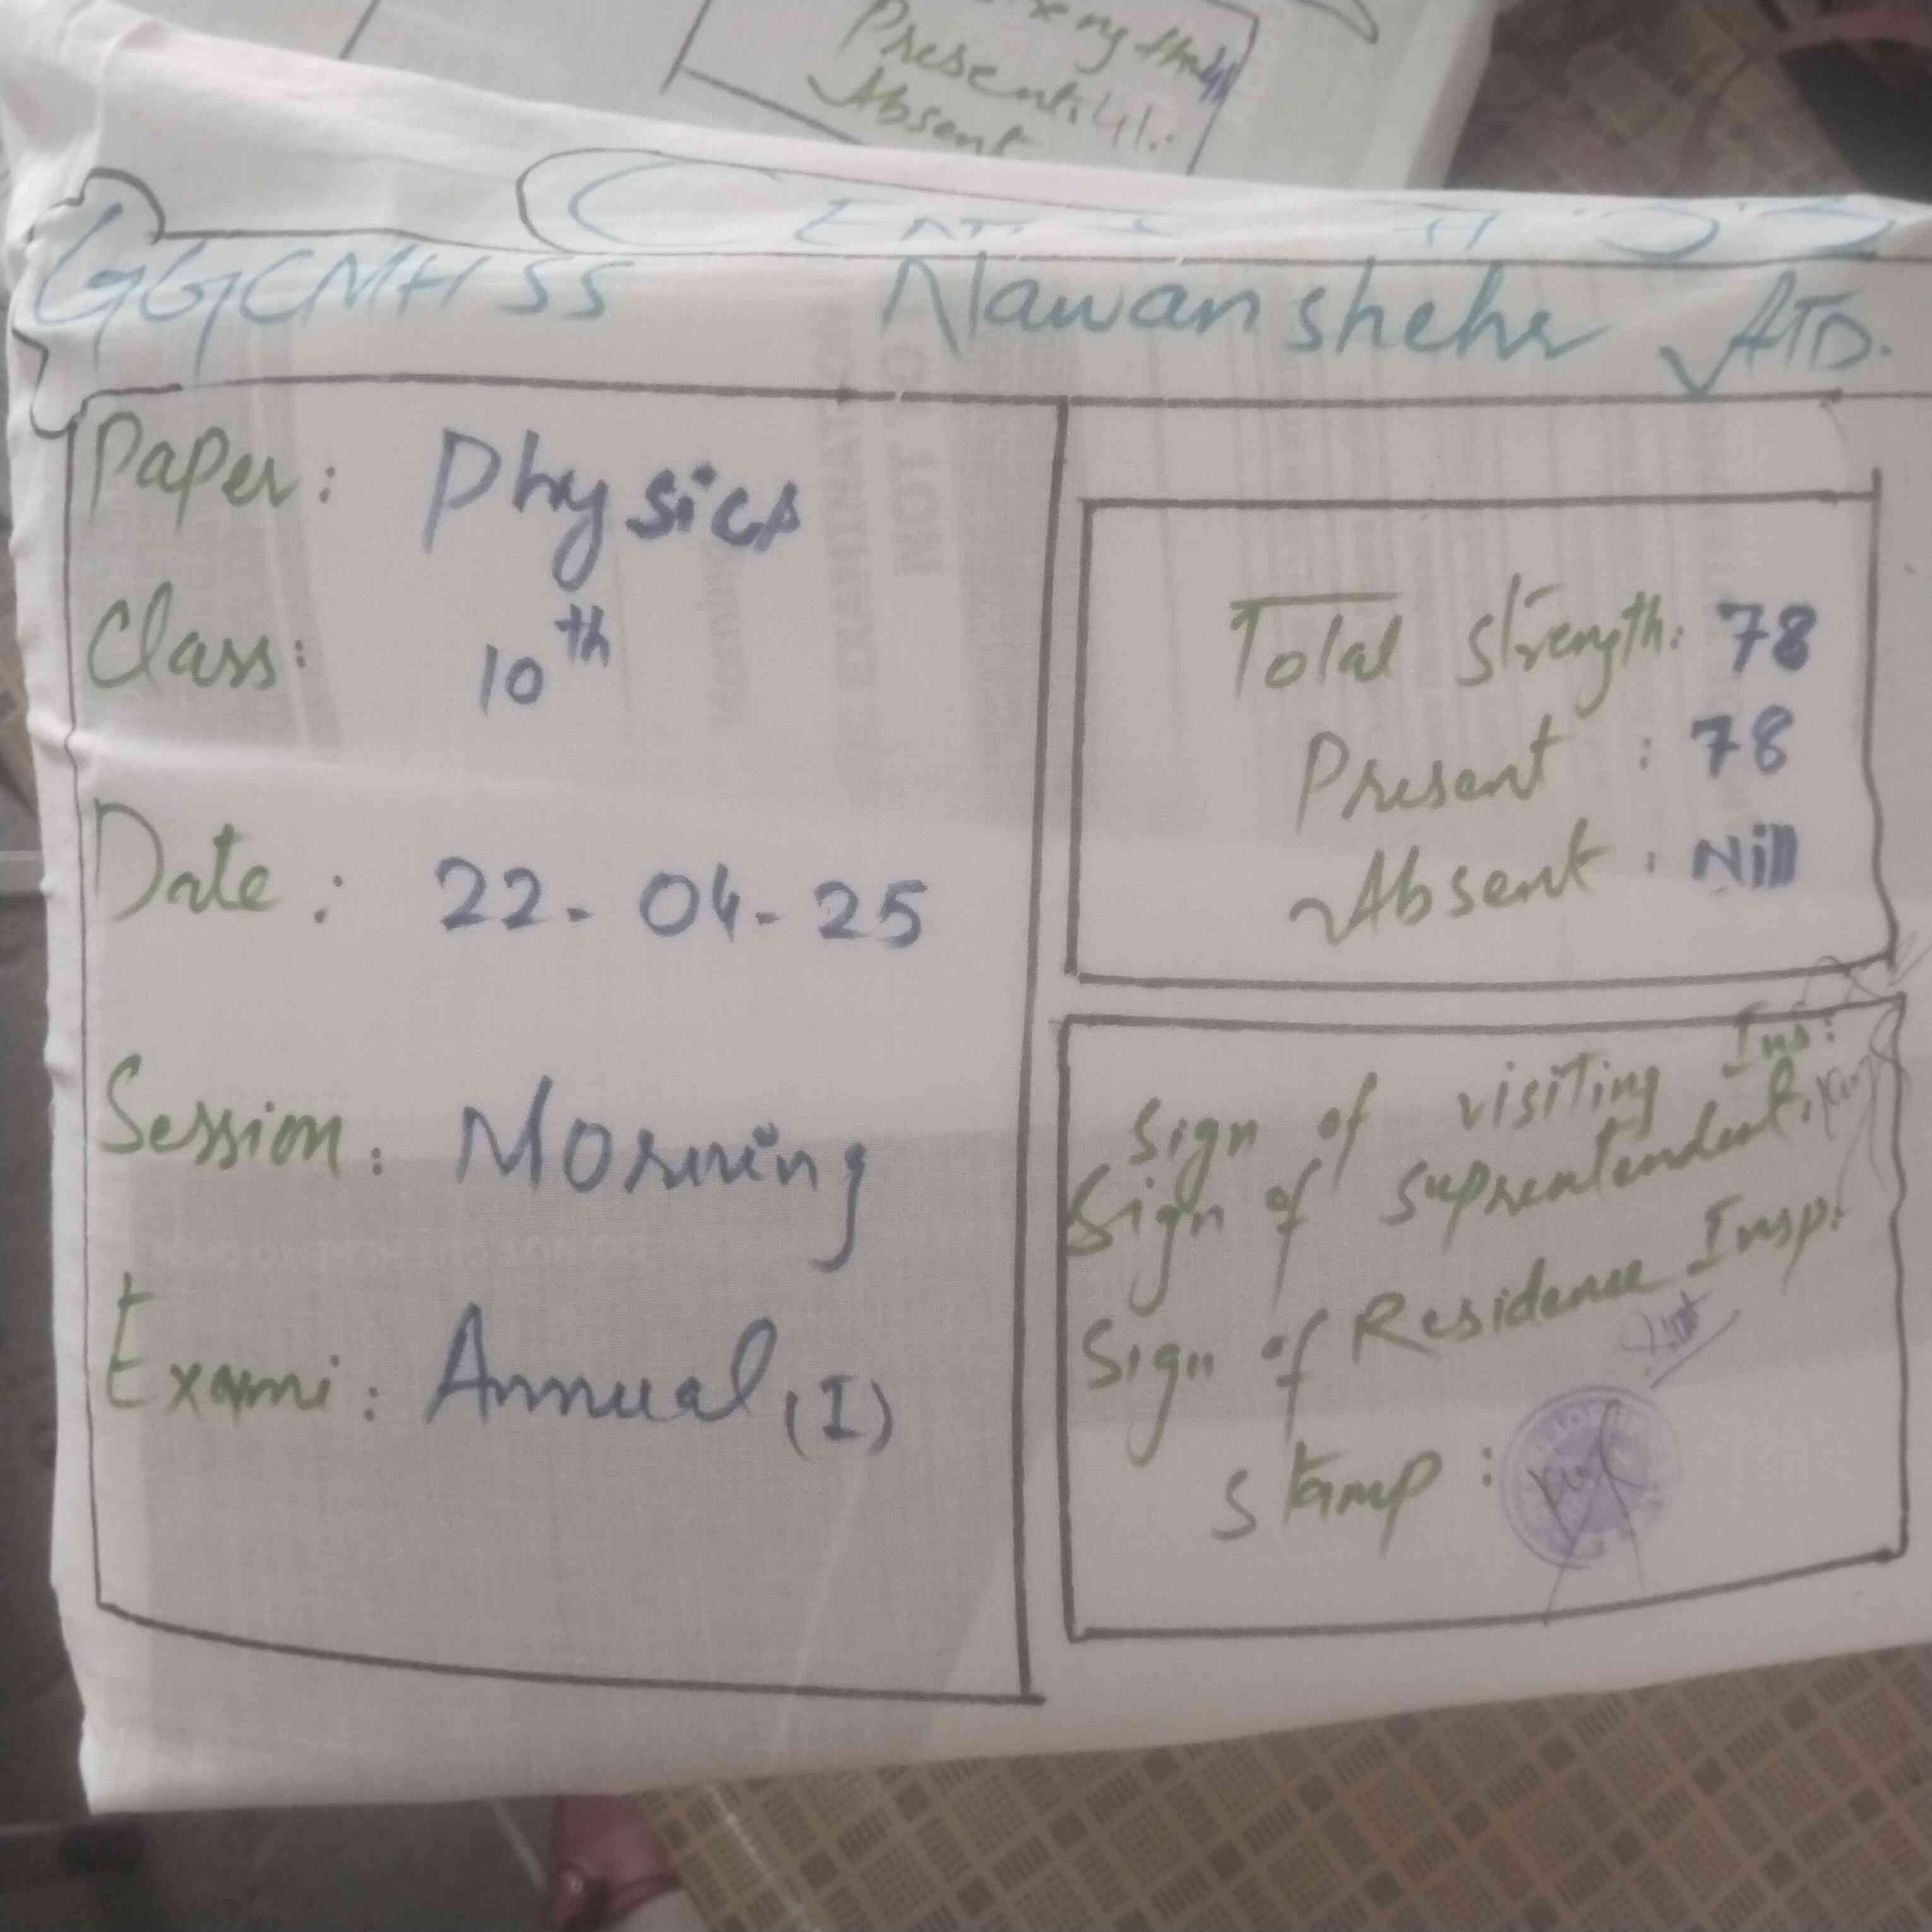 Present: 41.
Absent
GGCMHSS Nawanshehr ATD.
Paper: Physics
Class: 10th
Date: 22-04-25
Session: Morning
Exami: Annual (I)
Total Strength: 78
Present: 78
Absent: Nill
Sign of visiting Ins:
Sign of suprentendent:
Sign of Residence Insp:
Stamp: